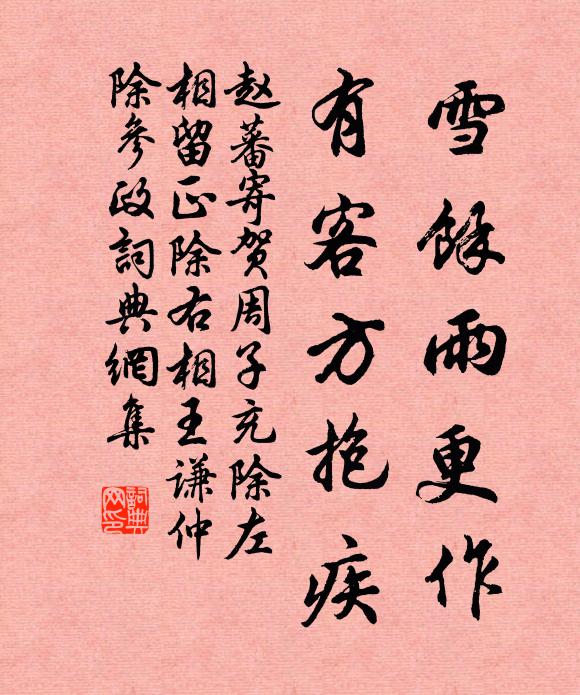 雪餘雨更作
有客方抱疾
赵蕃寄贺周子充除左
相留正除右相王谦仲
除參政詞典網集
詞典
网印